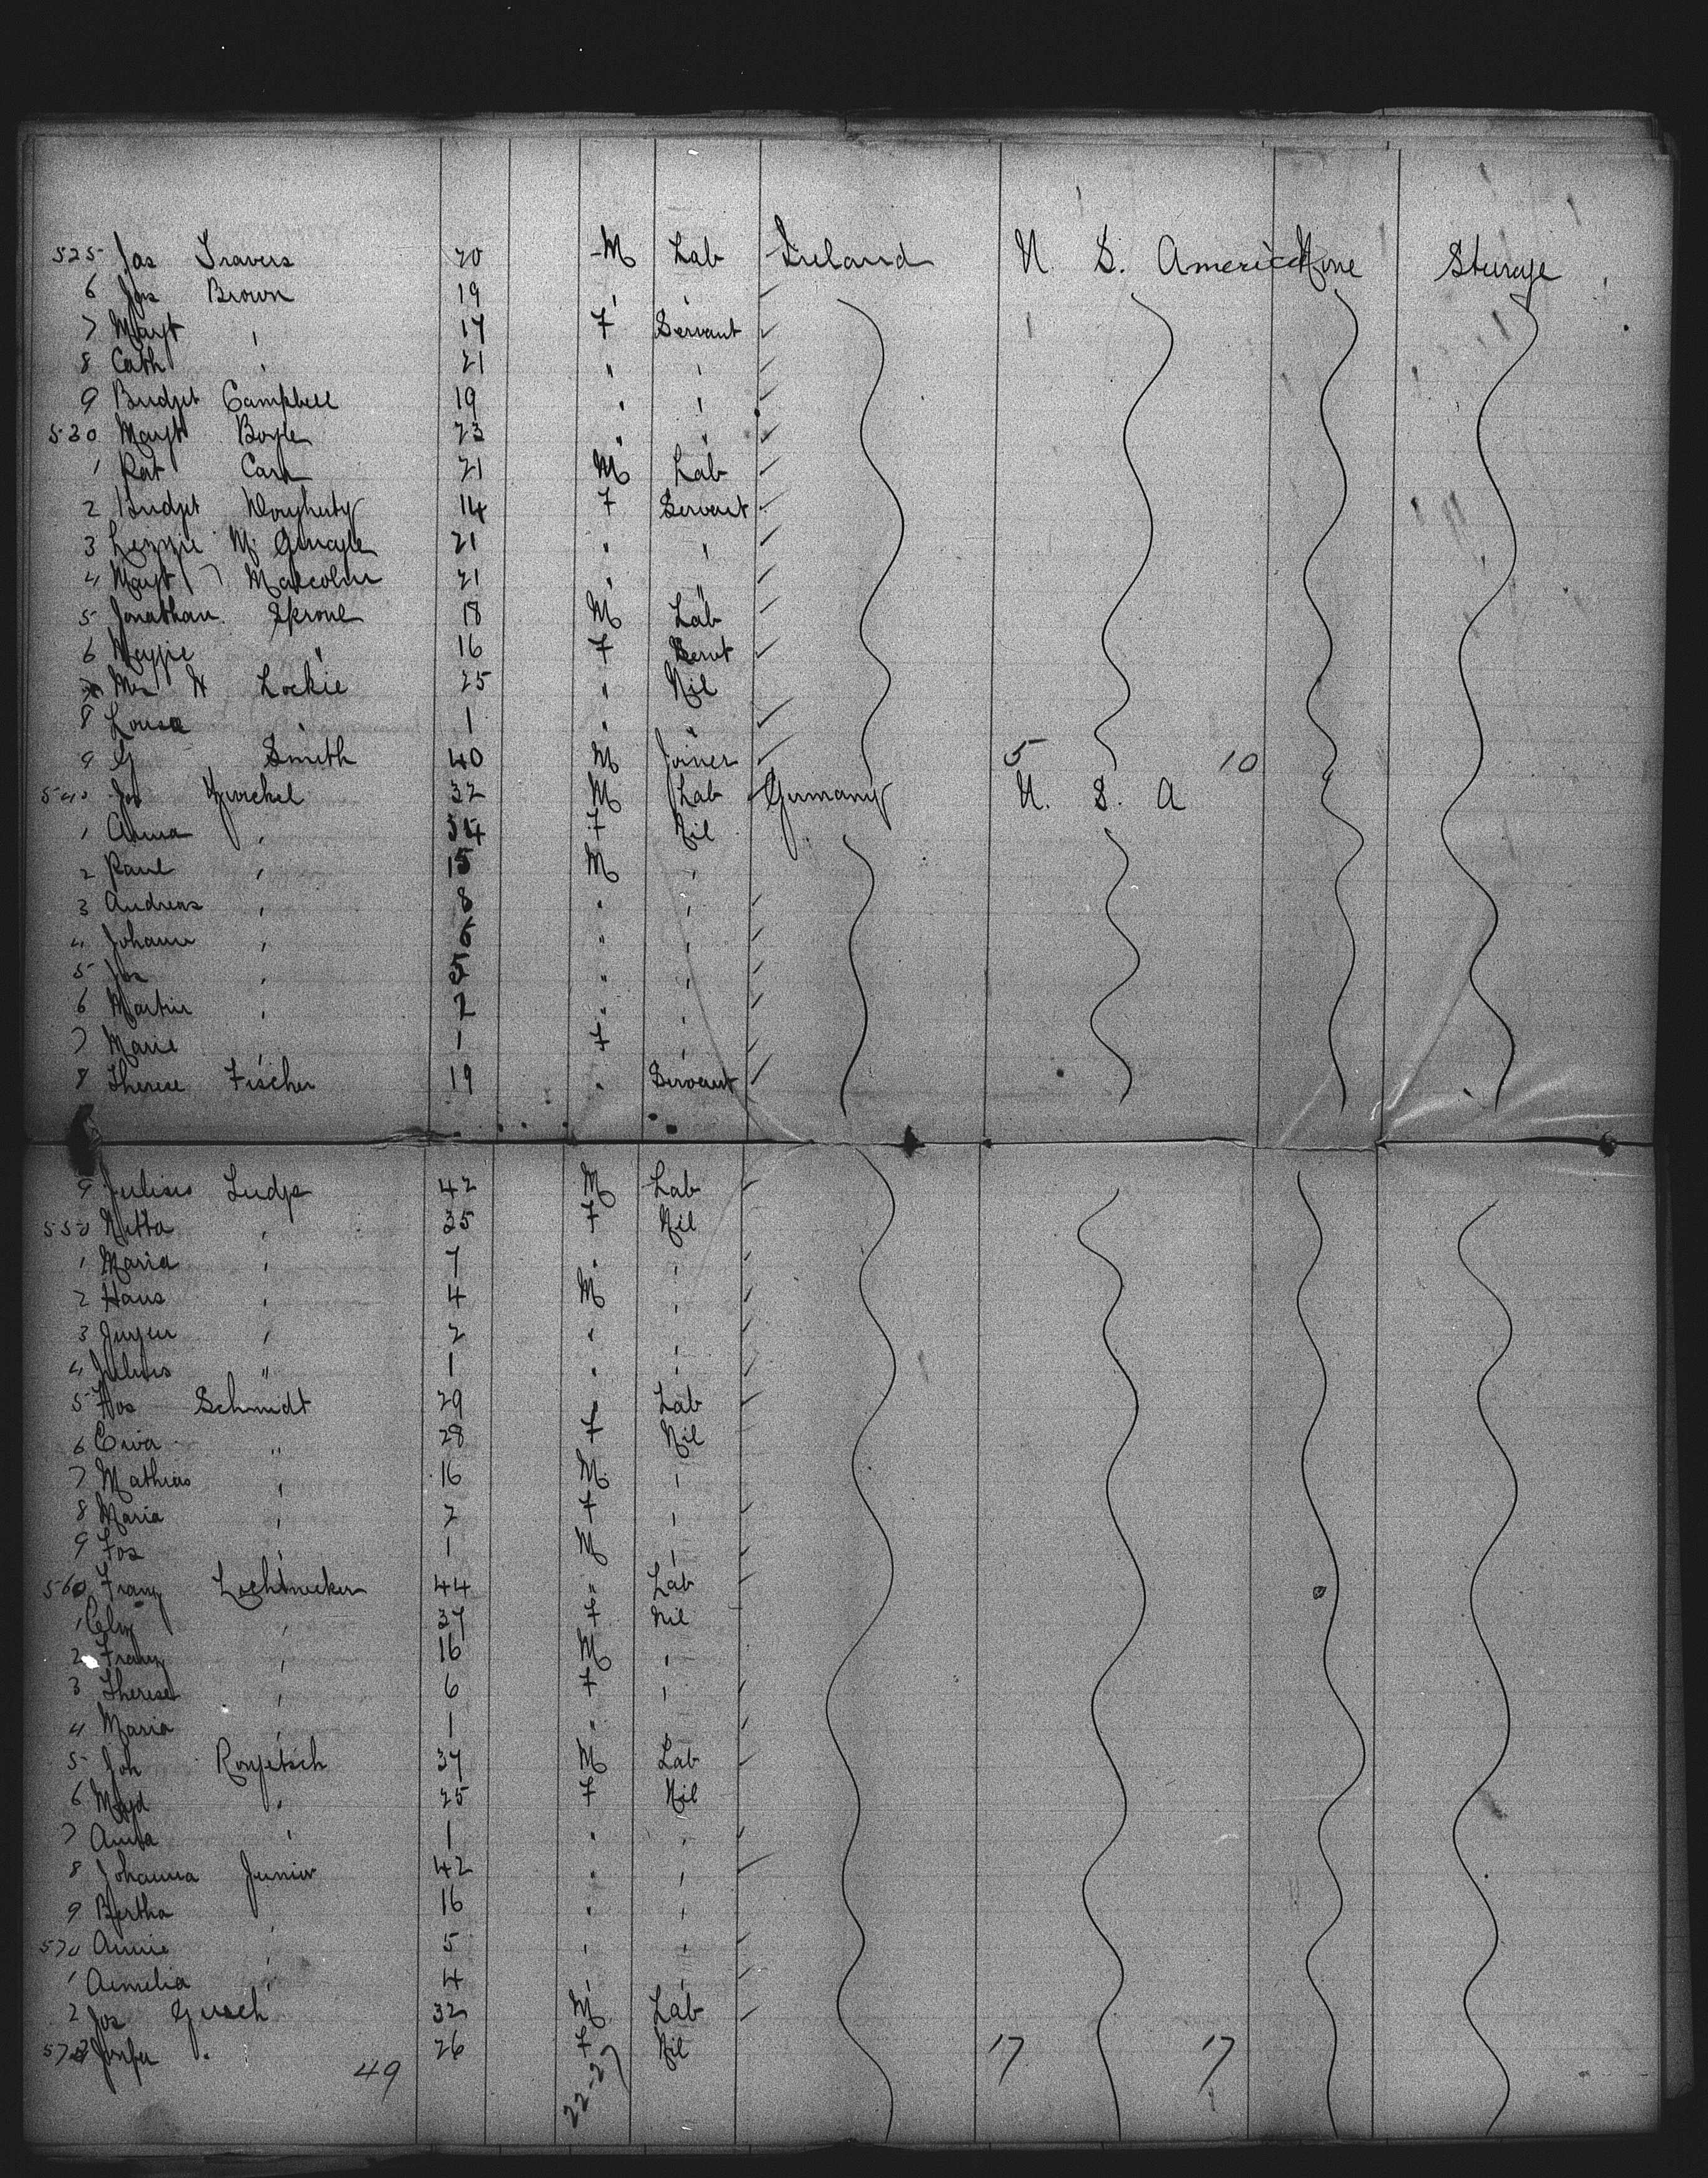 525 Jas Travers 20 M Lab Ireland U. S. America None Steerage
6 Jas Brown 19 " "
7 Margt " 17 F Servant
8 Cath " 21 " "
9 Bridget Campbell 19 " "
530 Margt Boyle 23 " "
1 Pat Carr 21 M Lab
2 Bridget Dougherty 14 F Servant
3 Lizzie 21 " "
4 Margt Malcolm 21 " "
5 Jonathan Sproul 18 M Lab
6 Maggie " 16 F Servt
7 Mrs H Lockie 25 " Nil
8 Louisa " 1 " "
9 G Smith 40 M Joiner 5 10
540 Jos 32 M Lab Germany U. S. A
1 Anna " 34 F Nil
2 Paul " 15 M "
3 Andreas " 8 " "
4 Johann " 6 " "
5 Jos " 5 " "
6 Martin " 2 " "
7 Marie " 1 F "
8 Therese Fischer 19 " Servant
9 Julius 42 M Lab
550 " 35 F Nil
1 Maria " 7 " "
2 Hans " 4 M "
3 Jurgen " 2 " "
4 Julius " 1 " "
5 Jos Schmidt 29 " Lab
6 " 28 F Nil
7 Mathias " 16 M "
8 Maria " 2 F "
9 Jos " 1 M "
560 Franz 44 " Lab
1 " 37 F Nil
2 Franz " 16 M "
3 Therese " 6 F "
4 Maria " 1 " "
5 Joh 37 M Lab
6 Magd " 25 F Nil
7 Anna " 1 " "
8 Johanna Junior 42 " "
9 Bertha 16 " "
570 Annie " 5 " "
1 Aemelia " 4 " "
2 Jos 32 M Lab
573 " 26 F Nil 17 17
49 22-27